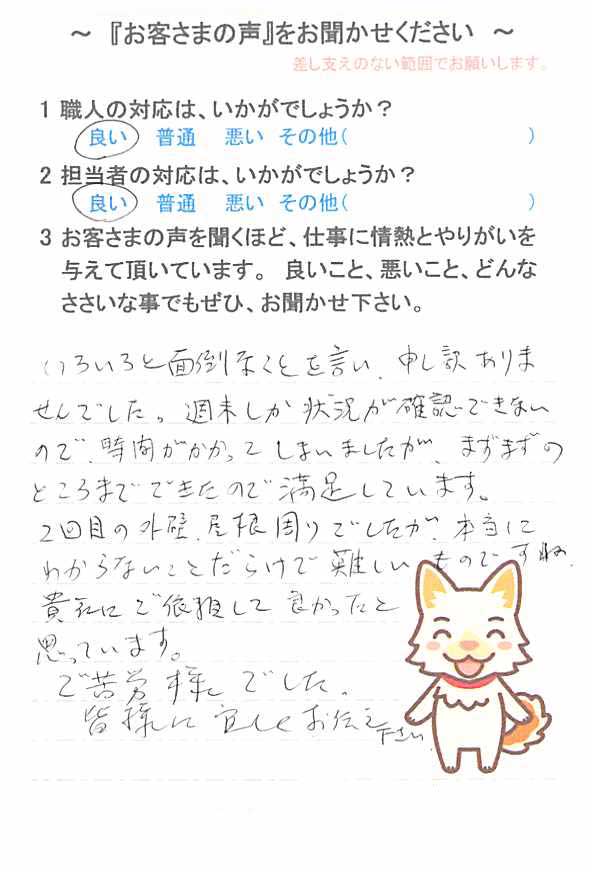 ～ 『お客さまの声』をお聞かせください ～
差し支えのない範囲でお願いします。
1 職人の対応は、いかがでしょうか？
良い 普通 悪い その他( )
2 担当者の対応は、いかがでしょうか？
良い 普通 悪い その他( )
3 お客さまの声を聞くほど、仕事に情熱とやりがいを
与えて頂いています。 良いこと、悪いこと、どんな
ささいな事でもぜひ、お聞かせ下さい。
いろいろと面倒なことを言い、申し訳ありま
せんでした。週末しか状況が確認できない
ので、時間がかかってしまいましたが、まずまずの
ところまでできたので満足しています。
2回目の外壁、屋根周りでしたが、本当に
わからないことだらけで難しいものですね。
貴社にご依頼して良かったと
思っています。
ご苦労様でした。
皆様に宜しくお伝え
下さい。